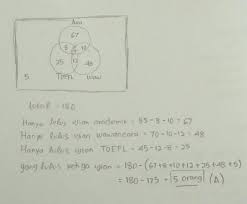 67
8
10
12
25
48
TOEFL
5
total = 180
Hanya lulus ujian akademis = 85 - 8 - 10 = 67
Hanya lulus ujian wawancara = 70 - 10 - 12 = 48
Hanya lulus ujian TOEFL = 45 - 12 - 8 = 25
yang lulus ketiga ujian = 180 - (67 + 8 + 10 + 12 + 25 + 48 + 5)
= 180 - 175 = 5 orang (A)